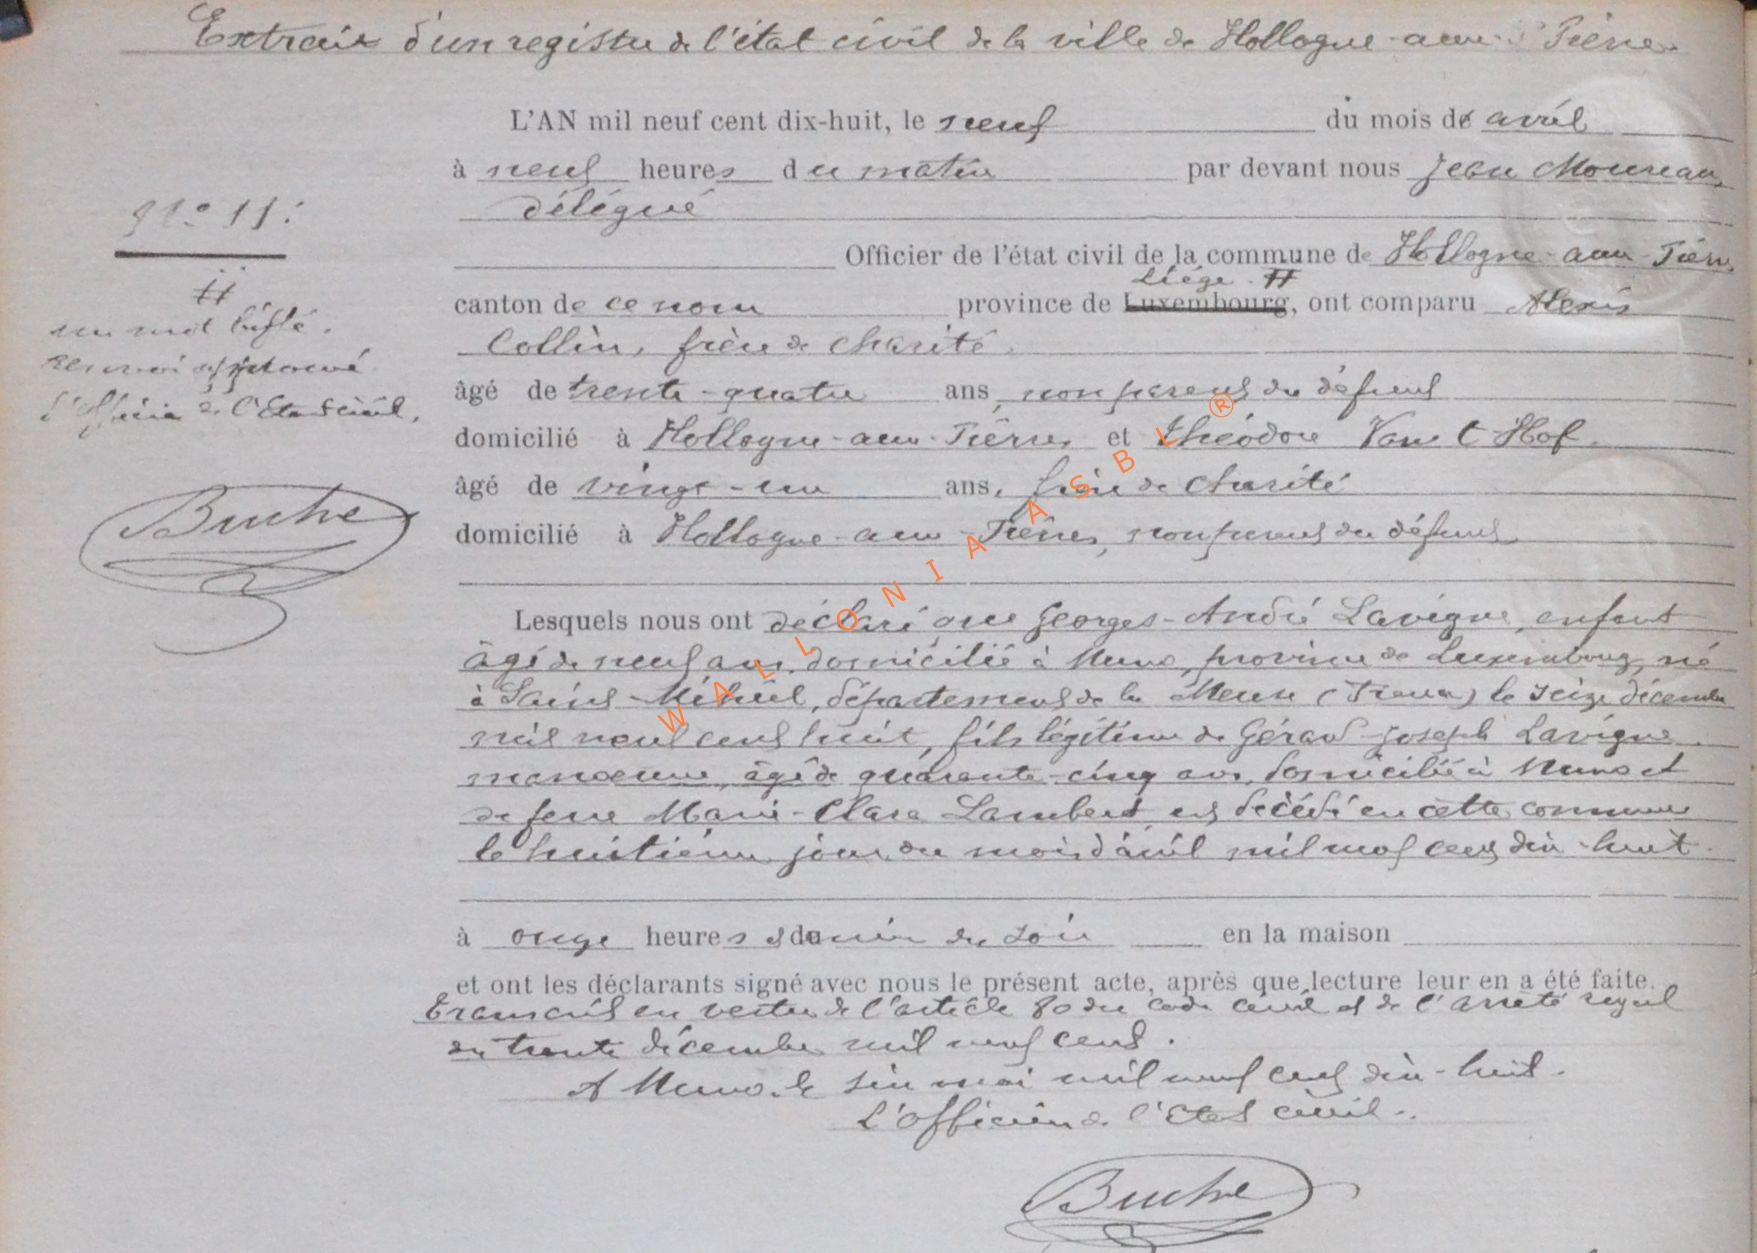 Extrait d'un registre de l'état civil de la ville de Hollogne-aux-Pierres
L'AN mil neuf cent dix-huit, le neuf du mois de avril
à neuf heures du matin par devant nous Jean Moureau,
délégué
N° 11.
Officier de l'état civil de la commune de Hollogne-aux-Pierres
Liége. #
canton de ce nom province de Luxembourg, ont comparu Alexis
Collin, frère de charité.
#
un mot biffé.
renvoi approuvé.
L'Officier de l'Etat civil,
âgé de trente-quatre ans, non parent du défunt
domicilié à Hollogne-aux-Pierres et Théodore Van t Hof.
âgé de vingt-un ans, frère de charité
domicilié à Hollogne-aux-Pierres, non parent du défunt
Buche
Lesquels nous ont déclaré que Georges-André Lavigne, enfant
âgé de neuf ans, domicilié à Muno, province de Luxembourg, né
à Saint-Mihiel, département de la Meuse (France) le seize décembre
mil neuf cent huit, fils légitime de Gérard-Joseph Lavigne
manoeuvre, âgé de quarante-cinq ans, domicilié à Muno et
de feue Marie-Clara Lambert est décédé en cette commune
le huitième jour du mois d'avril mil neuf cent dix-huit.
à onze heures et demie du soir en la maison
et ont les déclarants signé avec nous le présent acte, après que lecture leur en a été faite.
Transcrit en vertu de l'article 80 du code civil et de l'arrêté royal
du trente décembre mil neuf cent.
A Muno, le six mai mil neuf cent dix-huit.
L'officier de l'Etat civil..
Buche
WALLONIA ASBL ®